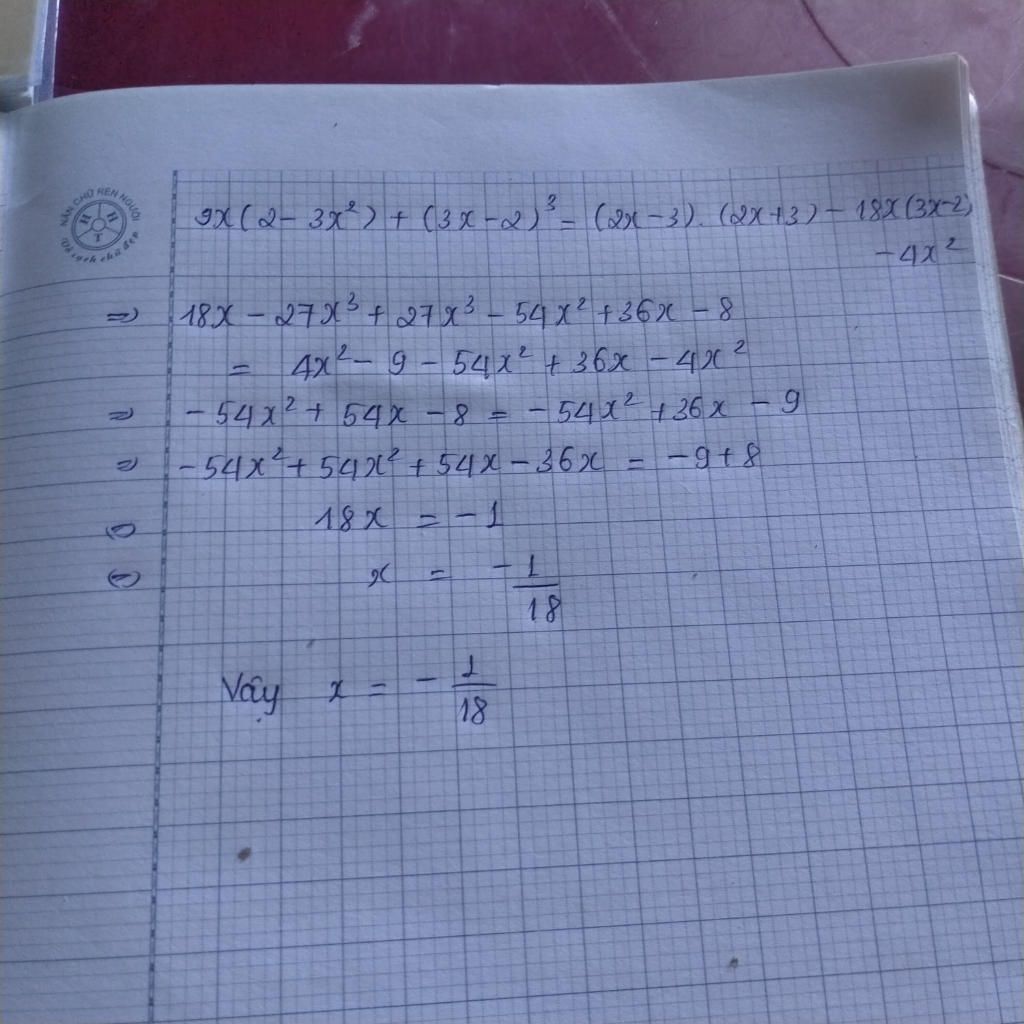 NẮN CHỮ RÈN NGƯỜI
H H T
Vở sạch chữ đẹp
9x(2 - 3x²) + (3x - 2)³ = (2x - 3).(2x + 3) - 18x(3x - 2)
- 4x²
=> 18x - 27x³ + 27x³ - 54x² + 36x - 8
= 4x² - 9 - 54x² + 36x - 4x²
=> - 54x² + 54x - 8 = - 54x² + 36x - 9
=> - 54x² + 54x² + 54x - 36x = - 9 + 8
⇔ 18x = - 1
⇔ x = - 1/18
Vậy x = - 1/18